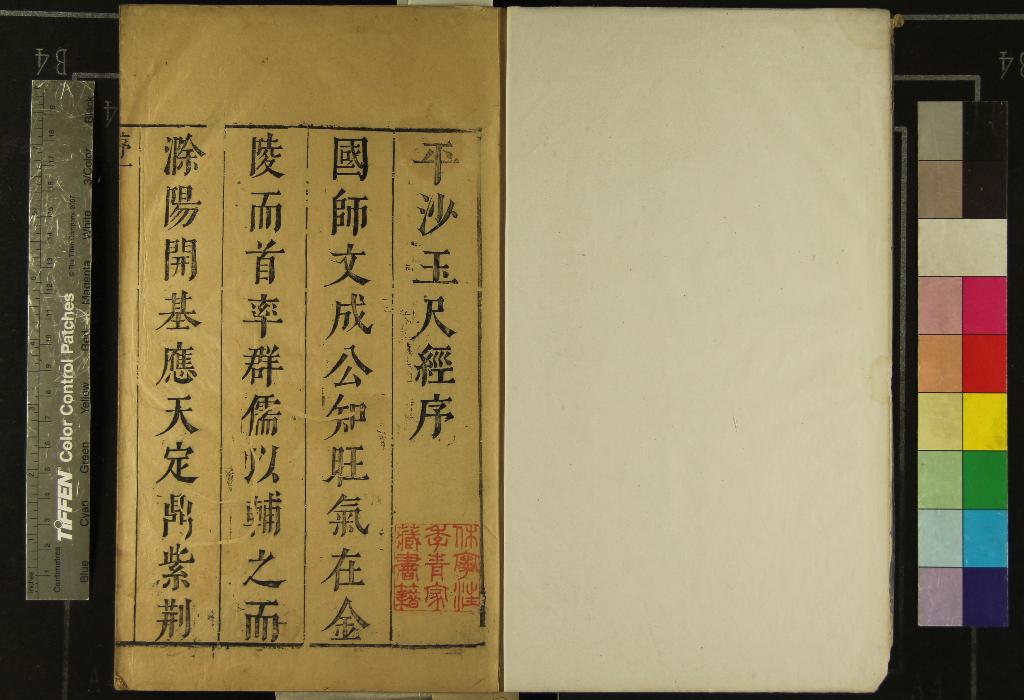 平沙玉尺經序
國師文成公知旺氣在金
陵而首率群儒以輔之而
滁陽開基應天定鼎紫荆
序一
休寧汪
季青家
藏書籍
TIFFEN Color Control Patches
© The Tiffen Company, 2007
Inches
Centimetres
Blue
Cyan
Green
Yellow
Red
Magenta
White
3/Color
Black
B4